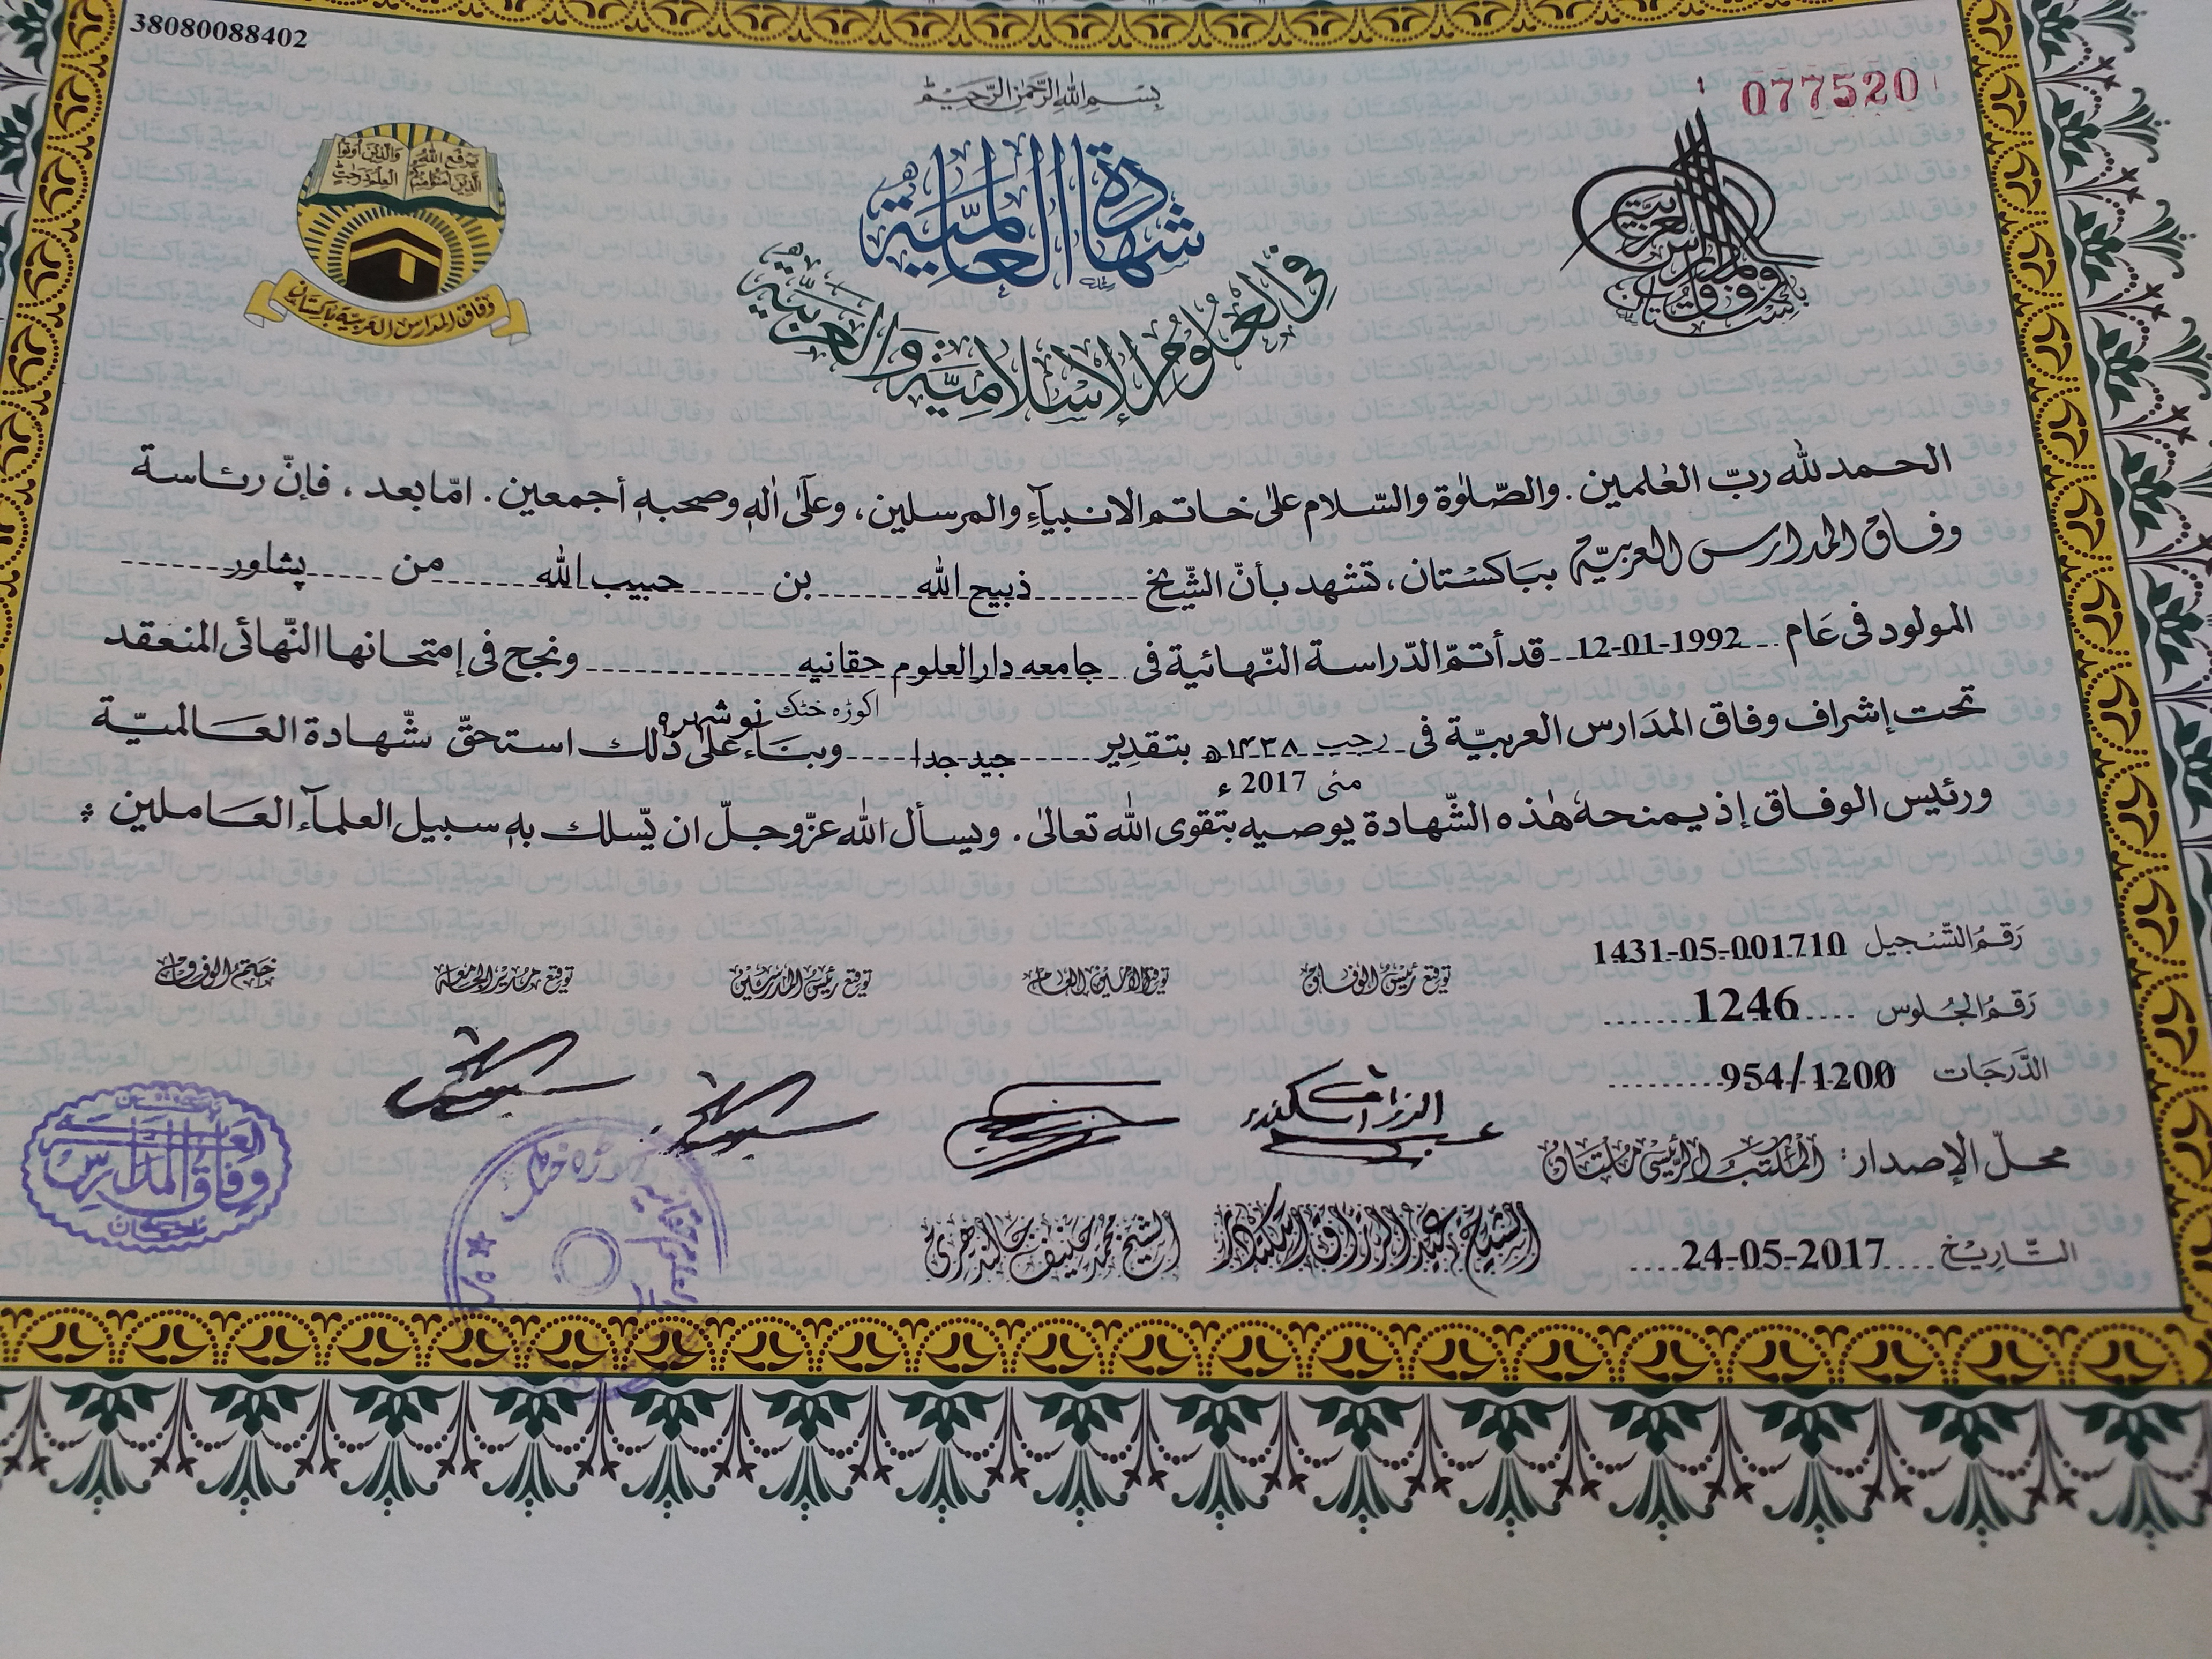 38080088402
077520
بِسْمِ اللهِ الرَّحْمٰنِ الرَّحِيْمِ
يَرْفَعِ اللهُ الَّذِيْنَ اٰمَنُوْا مِنْكُمْ وَالَّذِيْنَ اُوْتُوا الْعِلْمَ دَرَجٰتٍ
وفاق المدارس العربية باكستان
وفاق المدارس العربية باكستان
شهادة العالمية
في العلوم الإسلامية والعربية
الحمد لله ربّ العٰلمين. والصّلوٰة والسّلام علىٰ خاتم الانبيآءِ والمرسلين، وعلىٰ اٰلهٖ وصحبهٖ أجمعين. امّا بعد، فإنّ رئاسة
وفاق المدارس العربيّة بباكستان، تشهد بأنّ الشّيخ ذبيح الله بن حبيب الله من پشاور
المولود فى عَام 12-01-1992 قد أتمّ الدّراسة النّهائية فى جامعه دارالعلوم حقانيه ونجح فى إمتحانها النّهائى المنعقد
اکوڑہ خٹک نوشہرہ
تحت إشراف وفاق المدَارس العربيّة فى رجب ١٤٣٨ھ بتقدِير جيد جدا وبنَاء علىٰ ذٰلك استحقّ شّهادة العَالميّة
مئی 2017 ء
ورئيس الوفاق إذ يمنحهٗ هٰذه الشّهادة يوصيه بتقوى الله تعالىٰ. ويسأل الله عزّوجلّ ان يّسلك بهٖ سبيل العلمآء العَاملين
رَقمُ التّسْجيل 1431-05-001710
رَقمُ الجُلوس 1246
الدَّرَجَات 954/1200
محلّ الإصدار: المكتب الرئيسى ملتان
التَّاريخ 24-05-2017
توقيع رئيس الوفاق
توقيع الأمين العام
توقيع رئيس المدرسين
توقيع مدير الجامعة
ختم الوفاق
الشيخ عبد الرزاق اسكندر
الشيخ محمد حنيف جالندهرى
وفاق المدارس العربية